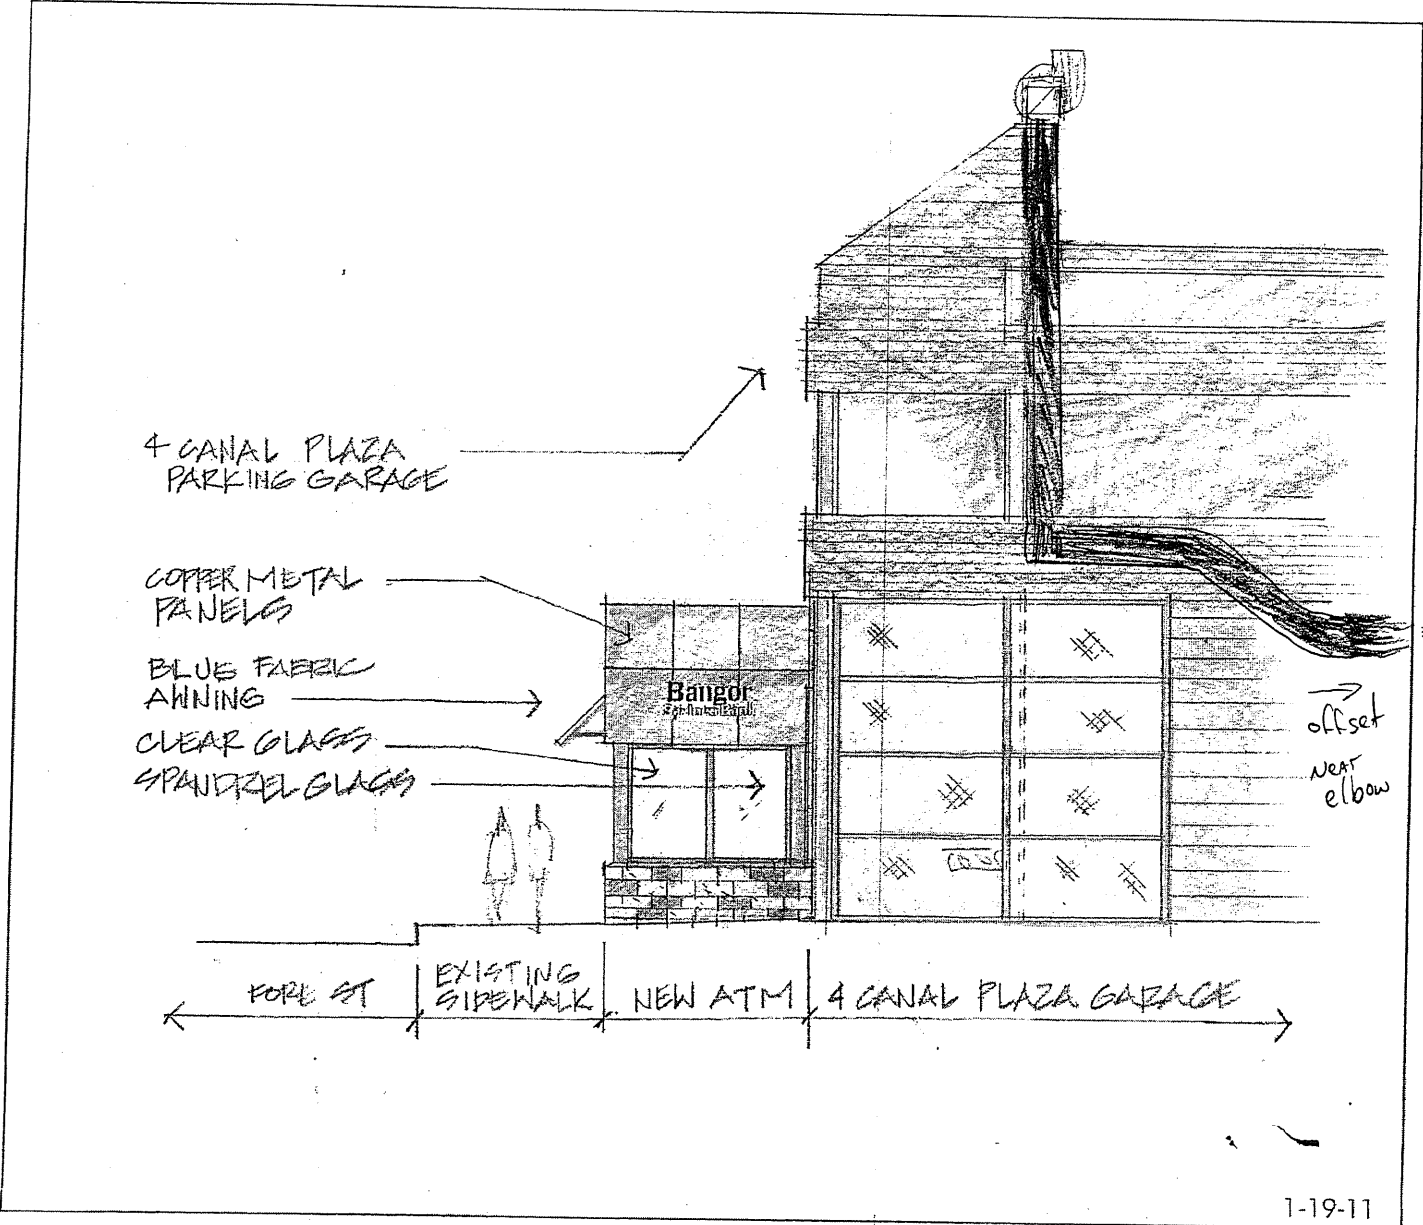 4 CANAL PLAZA
PARKING GARAGE
COPPER METAL
PANELS
BLUE FABRIC
AWNING
CLEAR GLASS
SPANDREL GLASS
Bangor
offset
Near
elbow
FORE ST
EXISTING
SIDEWALK
NEW ATM
4 CANAL PLAZA GARAGE
1-19-11